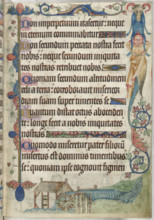 Non imperpetuum irascetur: neque
in eternum comminabitur
Non secundum peccata nostra fecit
nobis: neque secundum iniquitates
nostras retribuit nobis
Quoniam secundum altitudinem
celi a terra: corroboravit misericordiam
suam super timentes se
Quantum distat ortus ab occidente:
longe fecit a nobis iniquitates
nostras
Quomodo miseretur pater filiorum
misertus est dominus timentibus
se: quoniam ipse cognovit figmen